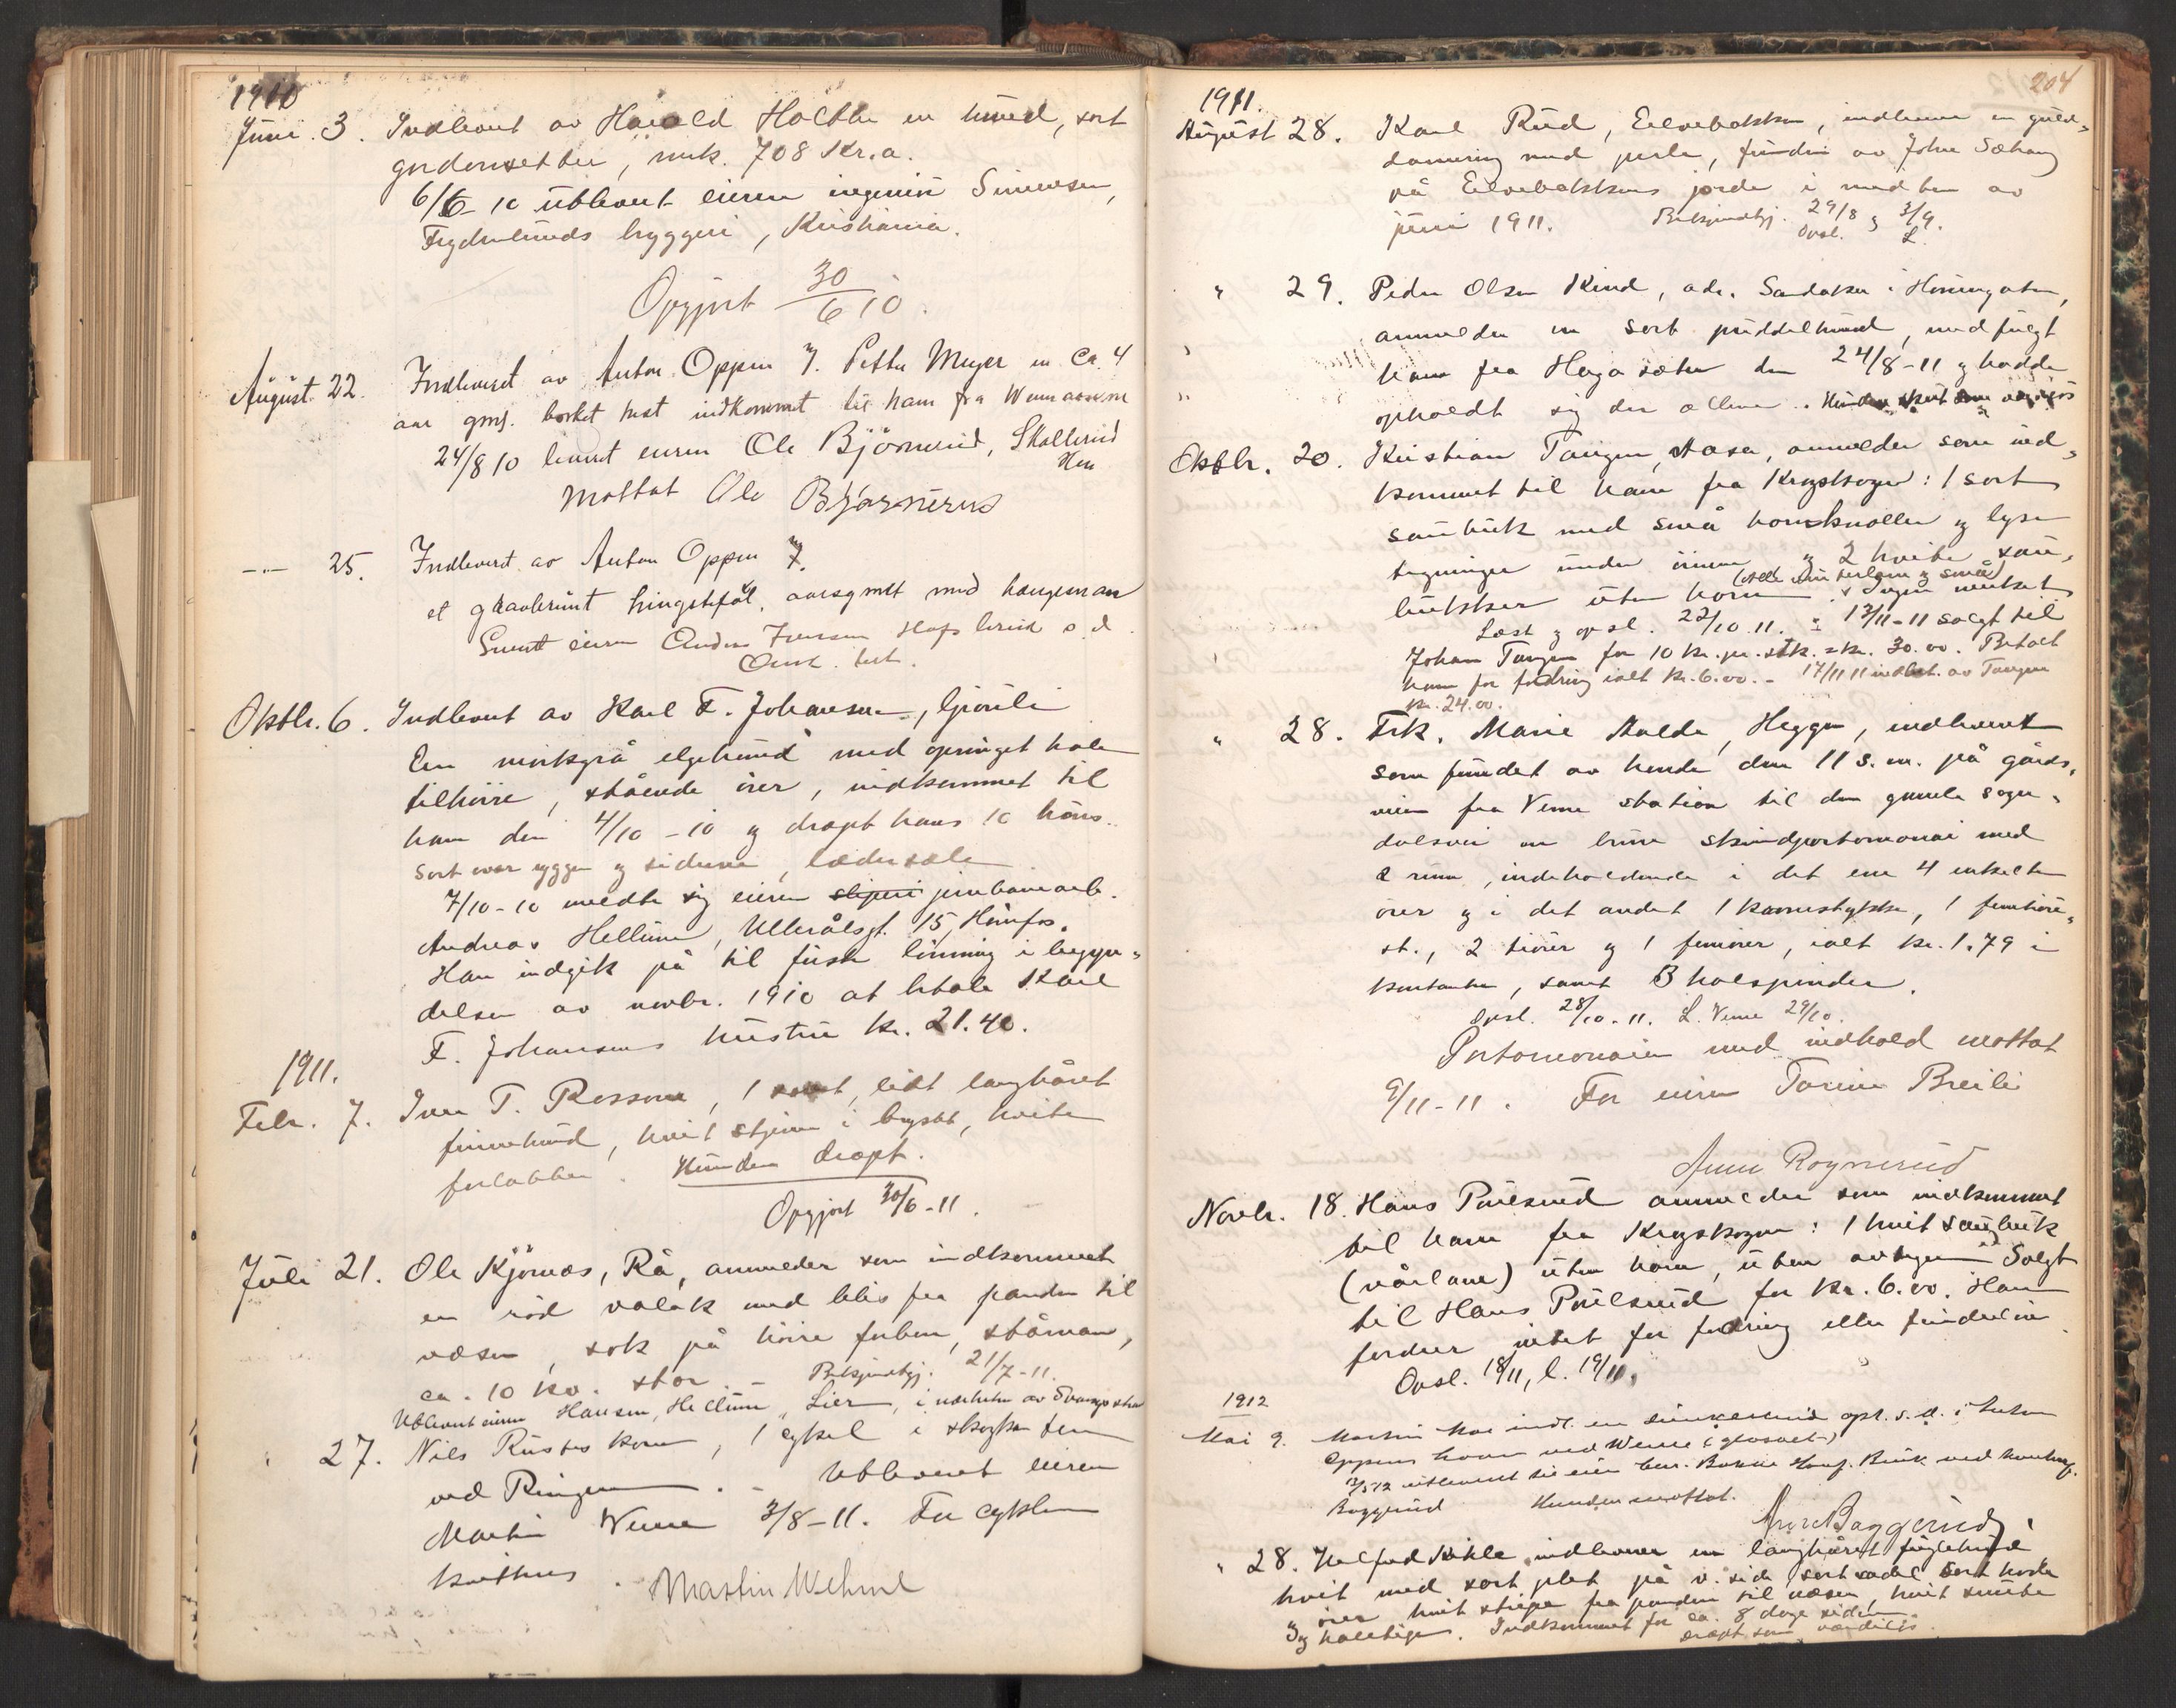 1910
Juni. 3. Indlevert av Harald Holthe en hund, sort
gordonsetter, merk. 708 Kr.a.
6/6-10 utlevert eieren ingeniør Simensen,
Frydenlunds bryggeri, Kristiania.
Opgjort 30/6 10.
August 22. Indleveret av Anton Oppen ved Petter Meyer en ca. 4
aar gml. borket hest indkommet til ham fra
24/8 10 levert eieren Ole Björnerud, Skollerud
Hen
Mottat Ole Bjørnerud
-"- 25. Indleverd av Anton Oppen
et graabrunt hingstføl, aarsgmlt med hængeman
eieren Anders s.d.
Oktbr. 6. Indlevert av Karl F. Johansen,
En mörkgrå elghund med opringet hale
tilhöire, stående örer, indkommet til
ham den 4/10-10 og dræpt hans 10 höns.
Sort over ryggen og siderne, lædersæle
7/10-10 meldte sig eieren sliperi jernbanearb.
Andreas Hellum, Ullerålsgt. 15, Hönefos.
Han indgik på til förste lönning i begyn-
delsen av novbr. 1910 at betale Karl
F. Johansens hustru kr. 21.40.
1911.
Febr. 7. Iver T. Rossone, 1 sort, lidt langhåret
finnehund, hvit stjerne i brystet, hvite
forlabber. Hunden dræpt.
Opgjort 30/6-11.
Juli 21. Ole Kjörnæs, Rå, anmelder som indkommet
en röd valak med blis fra panden til
næsen, sok på höire forben, ståman,
ca. 10 kv. stor. - Bekjendtgj. 21/7-11.
Utlevert eieren Hansen, Hellum, Lier, i nærheten av
" 27. Nils , 1 cykel i
ved Ringen. - Utleveret eieren
Martin Weme 3/8-11. For cyklen
kvitteres. Martin Wehme
204
1911.
August 28. Karl Rud, Eilvebakken, indleverer en guld-
damering med perle, funden av Johs Sæhaug
på Eilvebakkens jorde i midten av
juni 1911. Bekjendtgj. 29/8 og 3/9.
Opsl. L.
" 29. Peder Olsen Kind, adr. Sandaker i Höningaten,
anmelder en sort puddelhund, medfulgt
ham fra Haga sæter den 24/8-11 og hadde
opholdt sig der allene. Hunden skutt som
Oktbr. 20. Kristian Tangen, Aasa, anmelder som ind-
kommet til ham fra Krogskogen: 1 sort
saubuk med små hornknoller og lyse
tegninger under öinene og 2 hvite sau-
bukker uten horn (alle vinterlam og små). Ingen merket
Læst og opsl. 22/10.11. 13/11-11 solgt til
Johan Tangen for 10 kr. pr. stk. = kr. 30.00. Betalt
ham for fodring ialt kr. 6.00. - 17/11 11 indbet. av Tangen
kr. 24.00.
" 28. Frk. Marie Aalde, Heggen, indleveret
som fundet av hende den 11 s.m. på gårds-
veien fra Veme station til den gamle Sogn-
dalsvei en brun skindportemonai med
2 rum, indeholdende i det ene 4 enkelte
örer og i det andet 1 kronestykke, 1 femtiöre-
st., 2 tiörer og 1 femörer, ialt kr. 1.79 i
kontanter, samt 3 halspinder.
Opsl. 28/10-11. L. Veme 29/10.
Portemonaien med indhold mottat
9/11-11. For eieren Torine Breili
Anne Rognerud
Novbr. 18. Hans Poulsrud anmelder som indkommet
til ham fra Krogskogen: 1 hvit saubuk
(vårlam) uten horn, uten avtegn. Solgt
til Hans Poulsrud for kr. 6.00. Han
fordrer intet for fodring eller findelön.
Opsl. 18/11, l. 19/11.
1912
Mai 9. Martin Moe indl. en opl. s.d. i Anton
Oppens havn ved Weme (glosaet)
12/5 12 utlevert til eier
Baggerud Hunden mottat.
Baggerud
" 28. Kihle indleverer en langhåret fuglehund
hvit med sort plet på v. side sort sadel sort hode
örer hvit stripe fra panden til næsen, hvit snute
og haletip. Indkommet for ca. 8 dage siden
dræpt som værdilös.